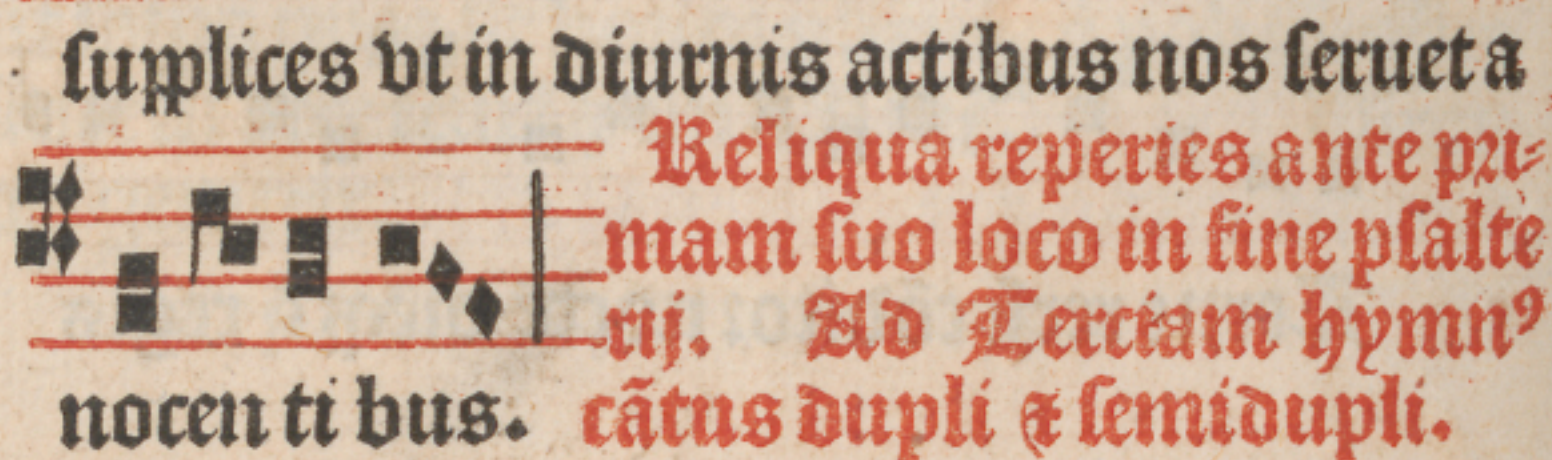 ſupplices vt in diurnis actibus nos ſeruet a
Reliqua reperies ante pri-
mam ſuo loco in fine pſalte
rij. Ad Terciam hymnꝰ
nocen ti bus. cãtus dupli ⁊ ſemidupli.